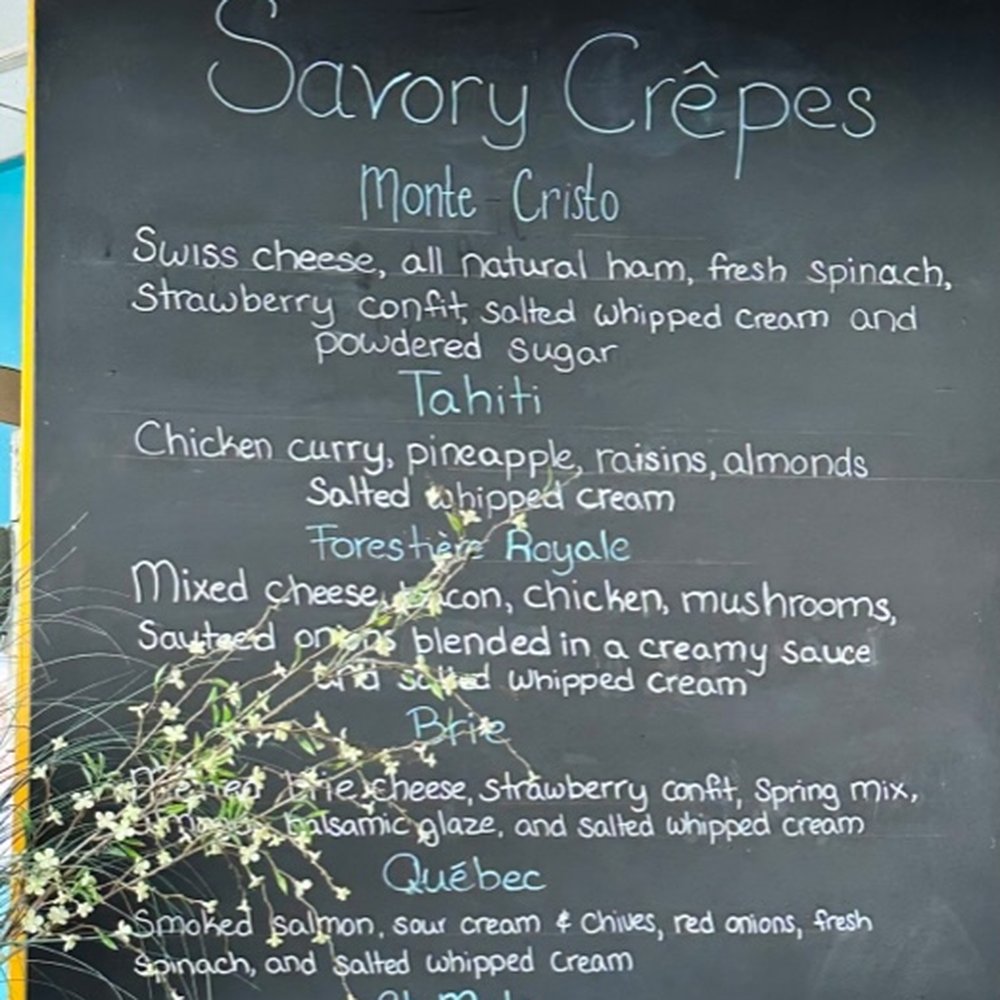 Savory Crêpes
Monte Cristo
Swiss cheese, all natural ham, fresh spinach,
Strawberry confit, salted whipped cream and
powdered sugar
Tahiti
Chicken curry, pineapple, raisins, almonds
Salted whipped cream
Forestière Royale
Mixed cheese, bacon, chicken, mushrooms,
Sauteed onions blended in a creamy sauce
and salted whipped cream
Brie
Melted brie cheese, strawberry confit, Spring mix,
balsamic glaze, and salted whipped cream
Québec
Smoked salmon, sour cream & Chives, red onions, fresh
Spinach, and salted whipped cream